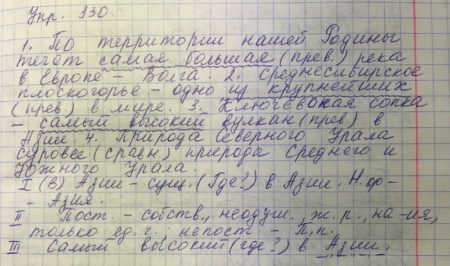 Упр. 330
1. По территории нашей Родины
течёт самая большая (прев.) река
в Европе – Волга. 2. Среднесибирское
плоскогорье – одно из крупнейших
(прев) в мире. 3. Ключевская сопка
– самый высокий вулкан (прев) в
Азии. 4. Природа Северного Урала
суровее (сравн) природы Среднего и
Южного Урала.
I (В) Азии – сущ. (Где?) в Азии. Н.ф–
– Азия.
II Пост. – собств., неодуш., ж. р., на -ия,
только ед. ч.; непост – П.п.
III Самый высокий (где?) в Азии.